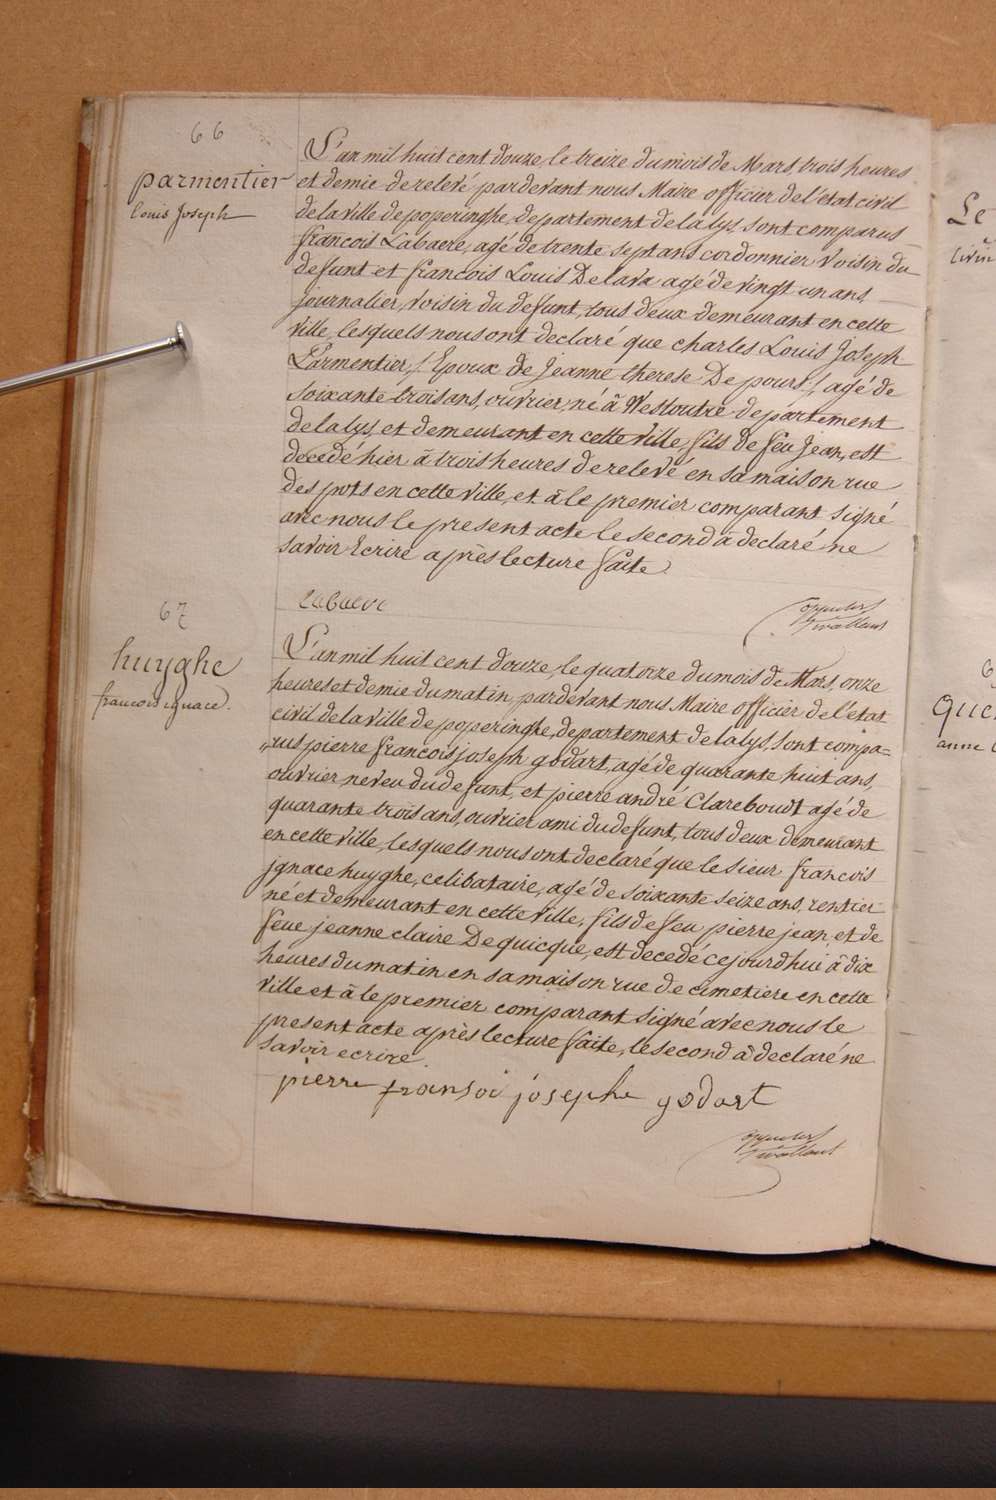 66
parmentier
louis Joseph
L'an mil huit cent douze, le treize du mois de Mars, trois heures
et demie de relevé pardevant nous Maire officier de l'état civil
de la ville de poperinghe, departement de la lys sont comparus
francois Labaere, agé de trente sept ans cordonnier voisin du
defunt et francois Louis Delava agé de vingt un ans,
journalier, voisin du defunt, tous deux demeurant en cette
ville, lesquels nous ont declaré que charles Louis Joseph
Parmentier, /: Epoux de Jeanne therese De pours :/ agé de
soixante trois ans, ouvrier, né à Westoutre departement
de la lys, et demeurant en cette ville, fils de feu Jean, est
decedé hier à trois heures de relevé en sa maison rue
des pots en cette ville, et à le premier comparant signé
avec nous le present acte le second à declaré ne
savoir Ecrire après lecture faite
labaere
67
huyghe
francois ignace.
L'an mil huit cent douze, le quatorze du mois de Mars, onze
heures et demie du matin, pardevant nous Maire officier de l'état
civil de la ville de poperinghe, departement de la lys, sont compa=
"rus pierre francois joseph godart, agé de quarante huit ans,
ouvrier neveu du defunt, et pierre andré Clareboudt agé de
quarante trois ans, ouvrier ami du defunt, tous deux demeurant
en cette ville, lesquels nous ont declaré que le sieur francois
jgnace huyghe, celibataire, agé de soixante seize ans, rentier
né et demeurant en cette ville, fils de feu pierre jean, et de
feue jeanne claire De quicque, est decedé cejourd'hui à dix
heures du matin en sa maison rue de cimetiere en cette
ville et à le premier comparant signé avec nous le
present acte après lecture faite, le second à declaré ne
savoir ecrire
pierre fransoi josephe godart
Le
livin
anne